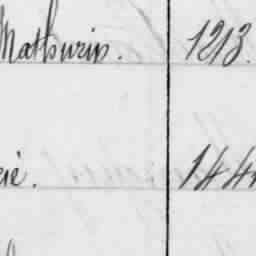 Mathurin. 1213.
cié. 144